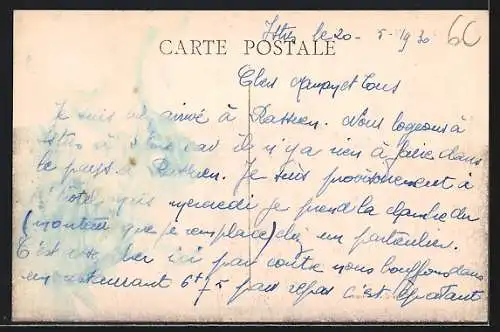 Istres le 20 - 5 - 1930
6C
CARTE POSTALE
Cher et tous
Je suis arrivé à Rassuen. Nous logeons à
Istres à car il n'y a rien à faire dans
le pays Rassuen. Je suis provisoirement à
l'hôtel mais mercredi je prend la chambre du
(monteur que je remplace) chez un particulier.
C'est cher ici par contre nous bouffons dans
un restaurant 6f75 par repas c'est épatant